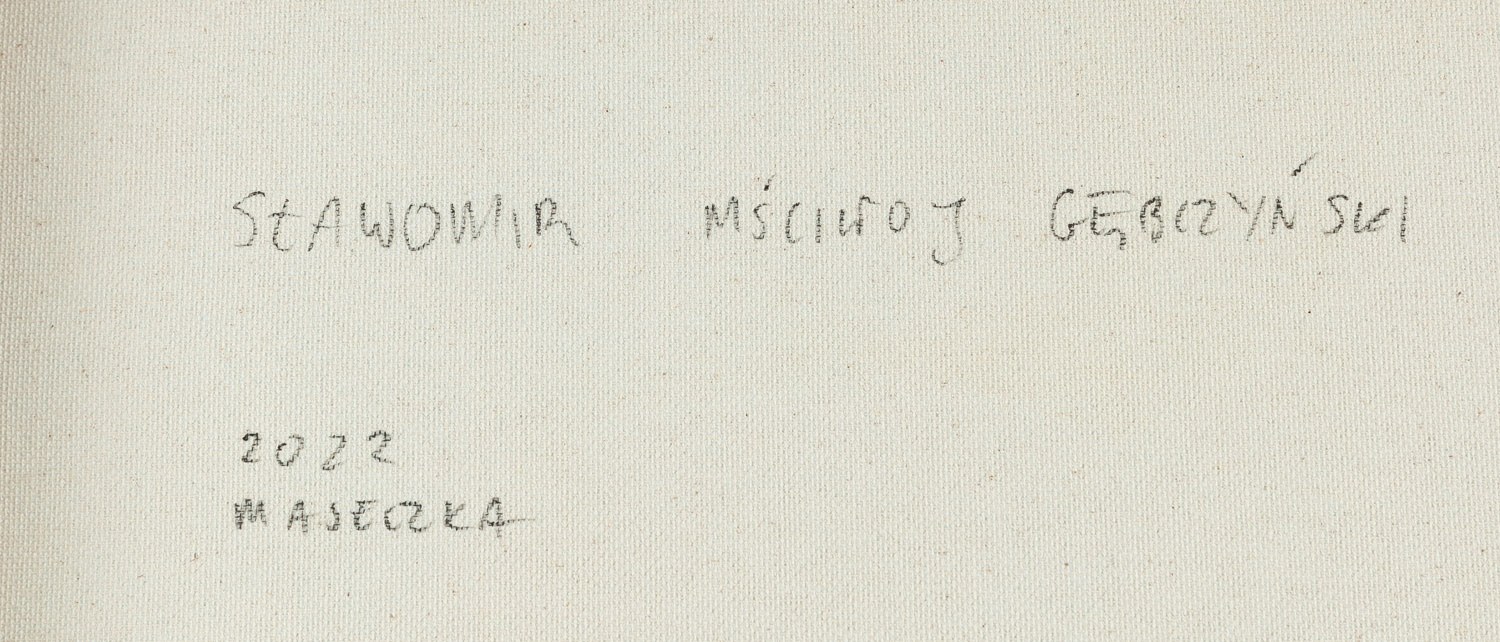 SŁAWOMIR MŚCIWOJ GĘBCZYŃSKI
2022
MASECZKA